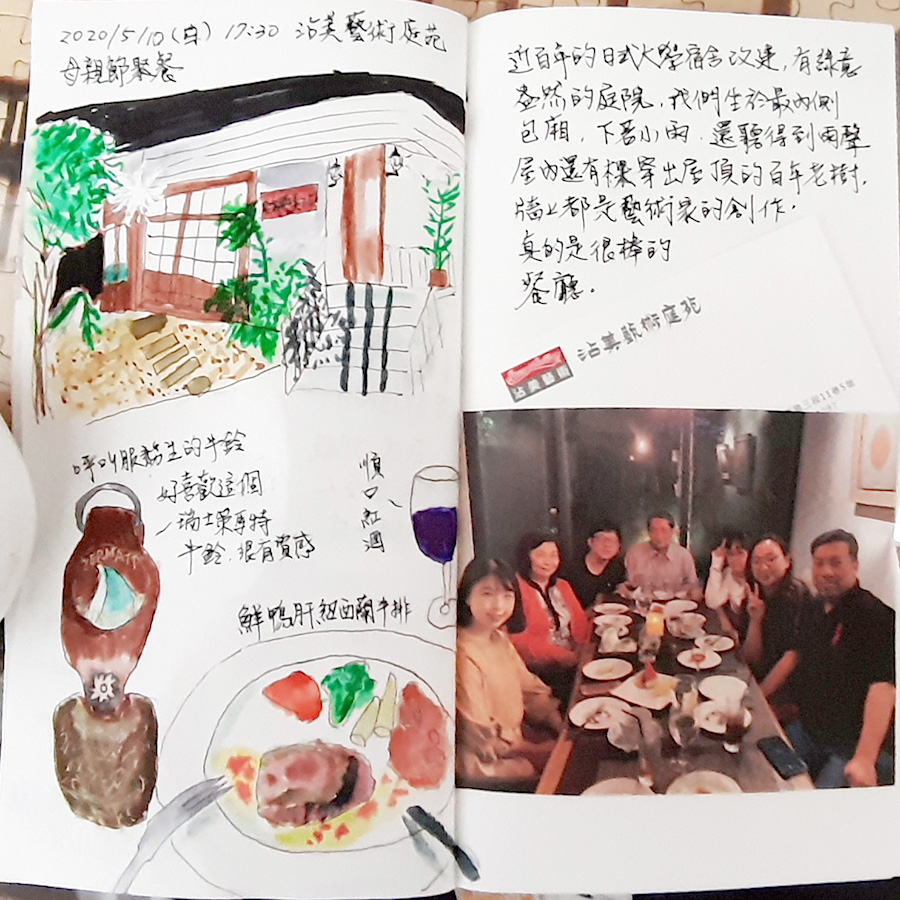 2020/5/10(日) 17:30 沾美藝術庭苑
母親節聚餐
呼叫服務生的牛鈴
好喜歡這個
瑞士策馬特
牛鈴.很有質感
順口紅酒
ZERMATT
鮮鴨肝紐西蘭牛排
近百年的日式大學宿舍改建,有綠意
盎然的庭院,我們坐於最內側
包廂,下著小雨,還聽得到雨聲
屋內還有棵穿出屋頂的百年老樹,
牆上都是藝術家的創作.
真的是很棒的
餐廳.
沾美藝術庭苑
沾美藝術
三段11巷5號